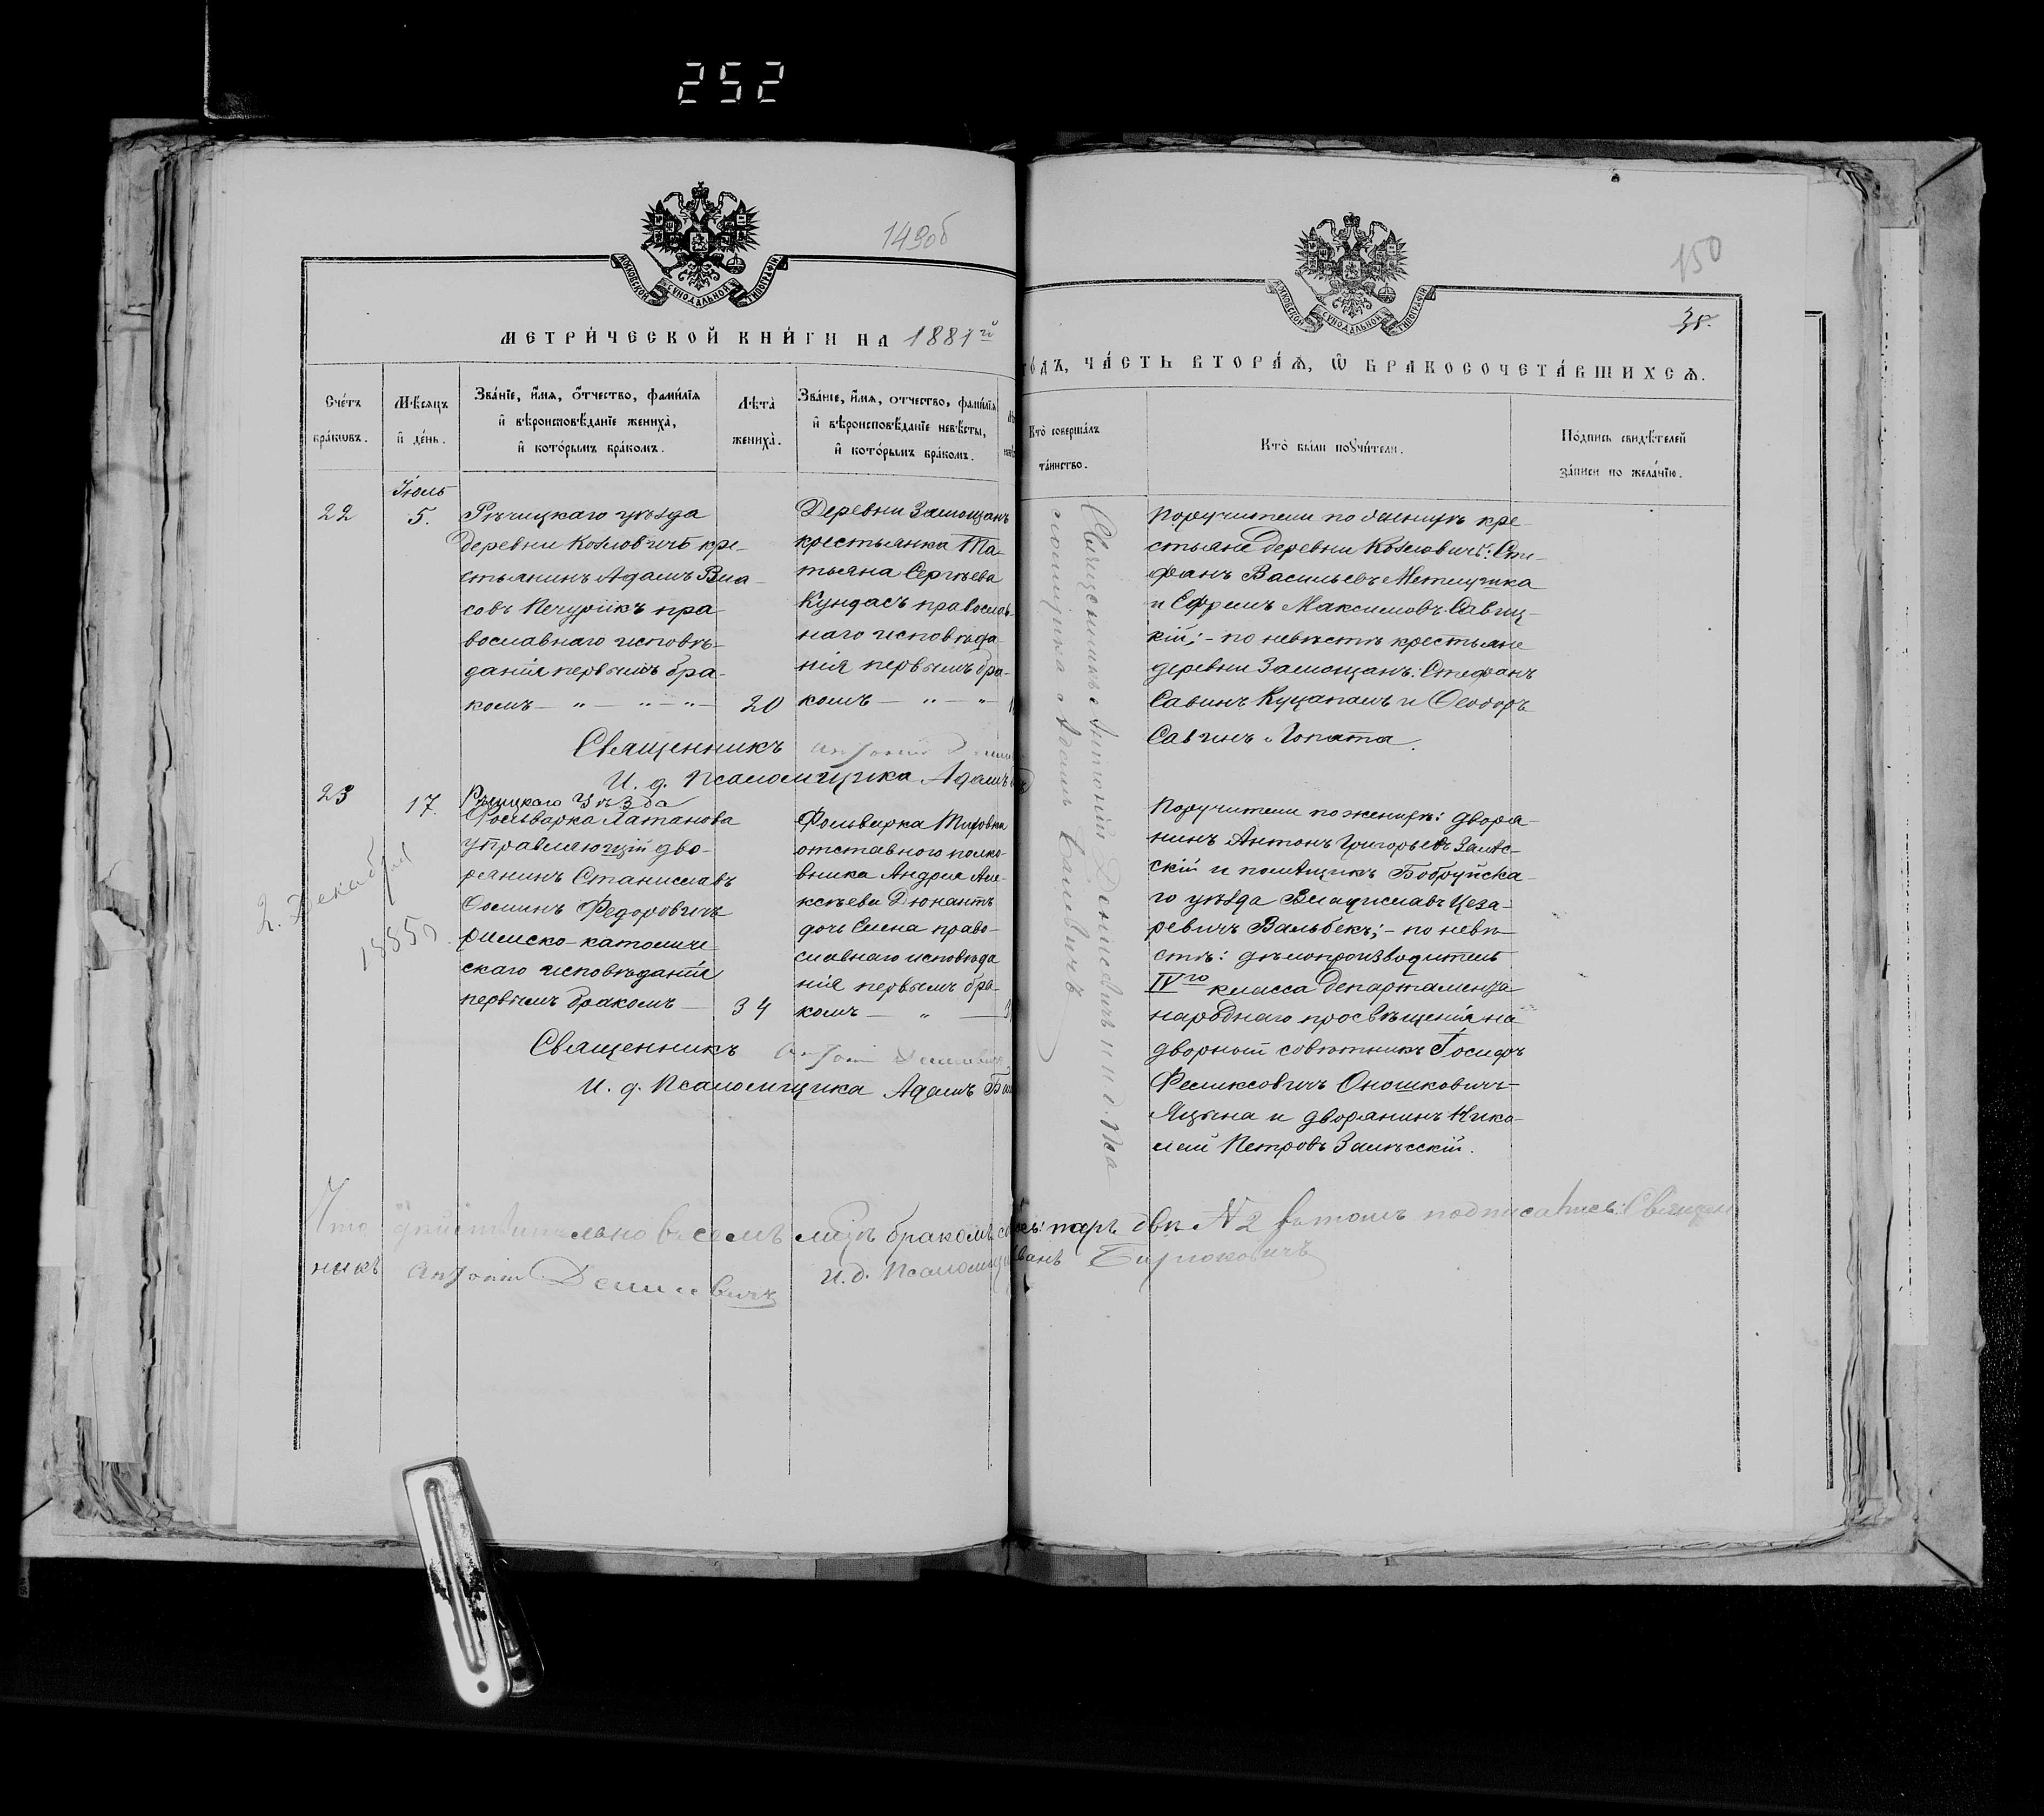 252
149об
150
35.
МОСКОВСКОЙ СѴНОДАЛЬНОЙ ТИПОГРАФІИ
МОСКОВСКОЙ СѴНОДАЛЬНОЙ ТИПОГРАФІИ
МЕТРИ́ЧЕСКОЙ КНИ́ГИ НА 1881й
ГО́ДЪ, ЧА́СТЬ ВТОРА́Ѧ, Ѿ БРАКОСОЧЕТА́ВШИХСѦ.
Сче́тъ
бра́кѡвъ.
Мѣ́сяцъ
и҆ де́нь.
Зва́нїе, и҆́мя, ѻ҆́тчество, фами́лїя
и҆ вѣроисповѣ́данїе жениха̀,
и҆ кото́рымъ бра́комъ.
Лѣта̀
жениха̀.
Зва́нїе, и҆́мя, отчество, фами́лїя
и҆ вѣроисповѣ́данїе невѣ́сты,
и҆ кото́рымъ бра́комъ.
Кто̀ соверша́лъ
та́инство.
Кто̀ бы́ли порꙋчи́тели.
По́дпись свидѣ́телей
за́писи по жела́нїю.
22
Іюль
5.
Рѣчицкаго уѣзда
деревни Козловичъ кре-
стьянинъ Адамъ Вла-
совъ Печурикъ пра-
вославнаго исповѣ-
данія первымъ бра-
комъ
20
Деревни Замощанъ
крестьянка Та-
тьяна Сергѣева
Кундасъ православ-
наго исповѣда-
нія первымъ бра-
комъ
Поручители по женихѣ кре-
стьяне деревни Козловичъ: Сте-
фанъ Васильевъ Метлушка
и Ефремъ Максимовъ Савиц-
кій; - по невѣстѣ крестьяне
деревни Замощанъ: Стефанъ
Савинъ Куцапалъ и Ѳеодоръ
Савинъ Лопата.
Священникъ Антоній
И. д. Псаломщика Адамъ
23
17.
Рѣчицкаго Уѣзда
Фольварка Латанова
управляющій дво-
рянинъ Станиславъ
Осипинъ Федоровичъ
римско-католиче
скаго исповѣданія
первымъ бракомъ
34
Фольварка
отставного полко-
вника Андрея Але-
ксѣева Дюнантъ
дочь Елена право-
славнаго исповѣда
нія первымъ бра-
комъ
2. Декабря
1885
Поручители по женихѣ: дворя-
нинъ Антонъ Григорьевъ Залѣс-
скій и помѣщикъ Бобруйска-
го уѣзда Владиславъ Цеза-
ревичъ Вальбекъ; - по невѣ-
стѣ: дѣлопроизводитель
IVго класса департамента
народнаго просвѣщенія на
дворный совѣтникъ Іосифъ
Феликсовичъ Оношковичъ-
Яцына и дворянинъ Нико-
лай Петровъ Залѣсскій.
Священникъ Антоній Денисевичъ
И. д. Псаломщика Адамъ
Священникъ Антоній Денисевичъ и и. д. Пса
ломщика Адамъ
Что дѣйствительно въ семъ листѣ бракомъ паръ двѣ № 2 въ томъ подписались: Священ
никъ Антоній Денисевичъ И. д. Псаломщика Иванъ Бирюковичъ